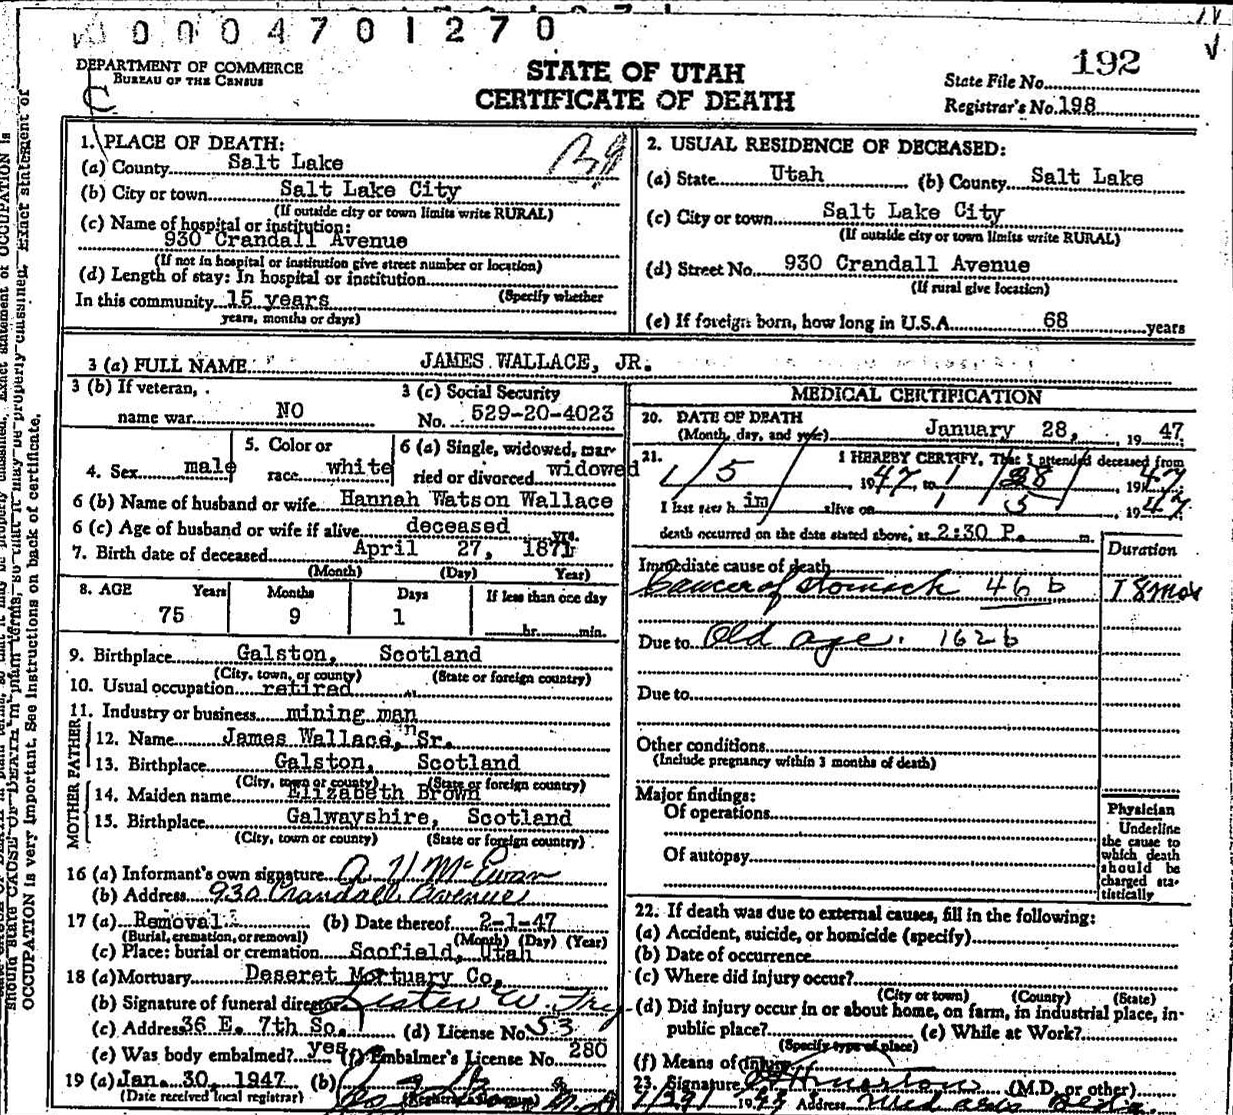 0004701270
DEPARTMENT OF COMMERCE
BUREAU OF THE CENSUS
C
STATE OF UTAH
CERTIFICATE OF DEATH
192
State File No.
Registrar's No. 198
1. PLACE OF DEATH:
(a) County Salt Lake
(b) City or town Salt Lake City
(If outside city or town limits write RURAL)
(c) Name of hospital or institution:
930 Crandall Avenue
(If not in hospital or institution give street number or location)
(d) Length of stay: In hospital or institution
In this community 15 years (Specify whether
years, months or days)
2. USUAL RESIDENCE OF DECEASED:
(a) State Utah (b) County Salt Lake
(c) City or town Salt Lake City
(If outside city or town limits write RURAL)
(d) Street No. 930 Crandall Avenue
(If rural give location)
(e) If foreign born, how long in U.S.A. 68 years
3 (a) FULL NAME JAMES WALLACE, JR.
3 (b) If veteran,
name war NO
3 (c) Social Security
No. 529-20-4023
4. Sex male
5. Color or
race white
6 (a) Single, widowed, mar-
ried or divorced widowed
6 (b) Name of husband or wife Hannah Watson Wallace
6 (c) Age of husband or wife if alive deceased yrs.
7. Birth date of deceased April 27, 1871
(Month) (Day) Year)
8. AGE Years Months Days If less than one day
75 9 1 hr. min.
9. Birthplace Galston, Scotland
(City, town, or county) (State or foreign country)
10. Usual occupation retired
11. Industry or business mining man
FATHER
12. Name James Wallace, Sr.
13. Birthplace Galston, Scotland
(City, town or county) (State or foreign country)
MOTHER
14. Maiden name Elizabeth Brown
15. Birthplace Galwayshire, Scotland
(City, town or county) (State or foreign country)
16 (a) Informant's own signature McEwan
(b) Address 930 Crandall Avenue
17 (a) Removal (b) Date thereof 2-1-47
(Burial, cremation, or removal) (Month) (Day) (Year)
(c) Place: burial or cremation Scofield, Utah
18 (a) Mortuary Deseret Mortuary Co.
(b) Signature of funeral director Lester W.
(c) Address 36 E. 7th So. (d) License No. 53
(e) Was body embalmed? yes (f) Embalmer's License No. 280
19 (a) Jan. 30, 1947 (b)
(Date received local registrar) (Registrar's signature)
MEDICAL CERTIFICATION
20. DATE OF DEATH
(Month, day, and year) January 28, 1947
21. I HEREBY CERTIFY, That I attended deceased from
1/5/ 1947 to 1/28/ 1947
I last saw h im alive on 1 5 1947
death occurred on the date stated above, at 2:30 P. m.
Duration
Immediate cause of death
Cancer of stomach 46 b 18 mos
Due to Old age. 162 b
Due to
Other conditions
(Include pregnancy within 3 months of death)
Major findings:
Of operations
Of autopsy
Physician
Underline
the cause to
which death
should be
charged sta-
tistically
22. If death was due to external causes, fill in the following:
(a) Accident, suicide, or homicide (specify)
(b) Date of occurrence
(c) Where did injury occur?
(City or town) (County) (State)
(d) Did injury occur in or about home, on farm, in industrial place, in-
public place? (e) While at Work?
(Specify type of place)
(f) Means of injury
23. Signature (M.D. or other)
Address
OCCUPATION is very important. See instructions on back of certificate.